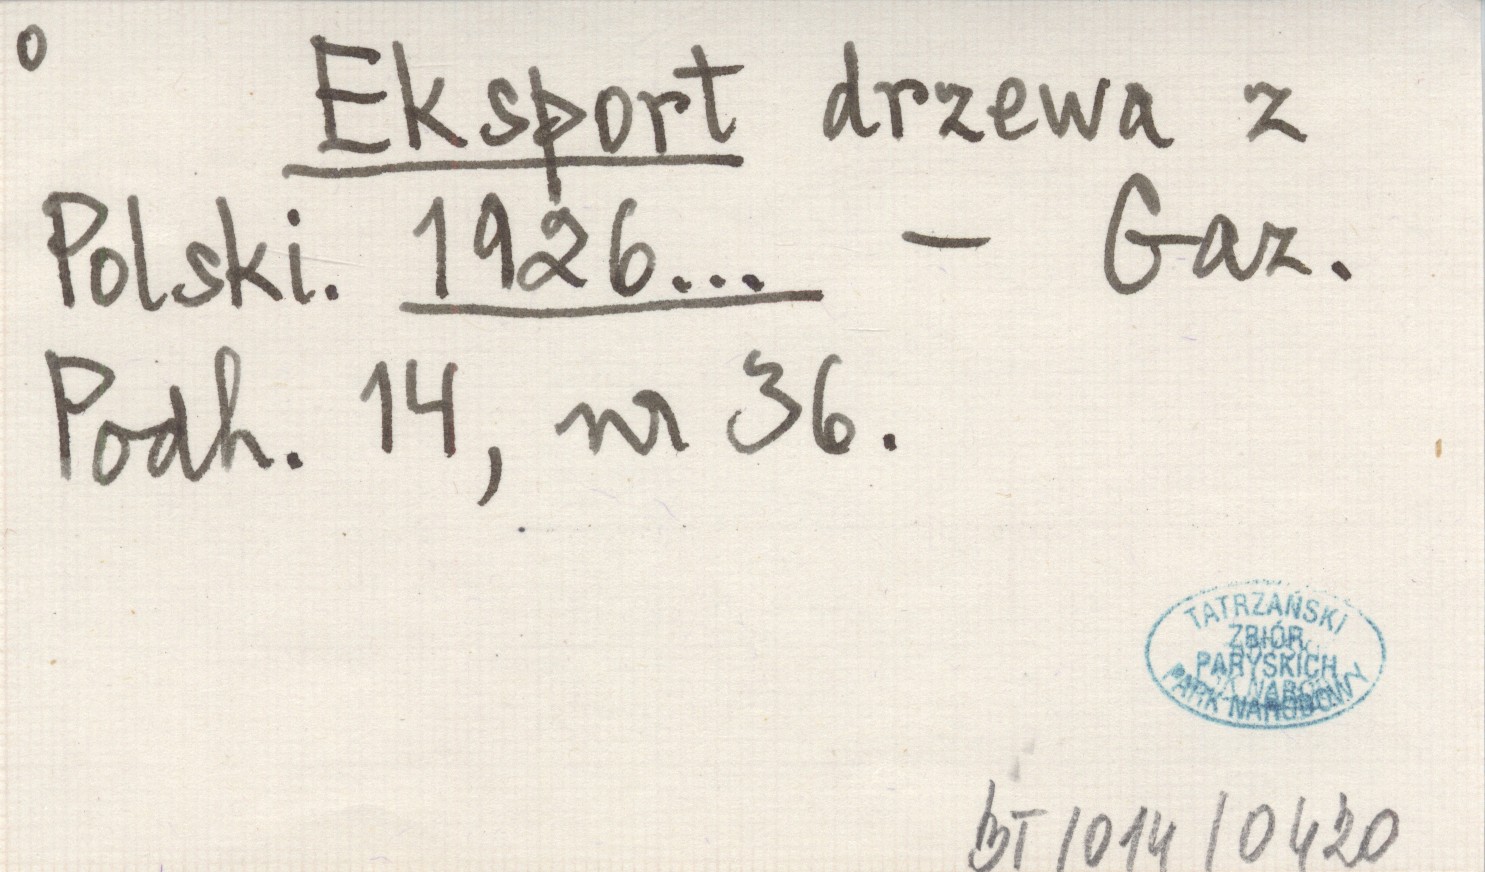 o
Eksport drzewa z
Polski. 1926... — Gaz.
Podh. 14, nr 36.
TATRZAŃSKI
ZBIÓR
PARYSKICH
PARK NARODOWY
BT/014/0420